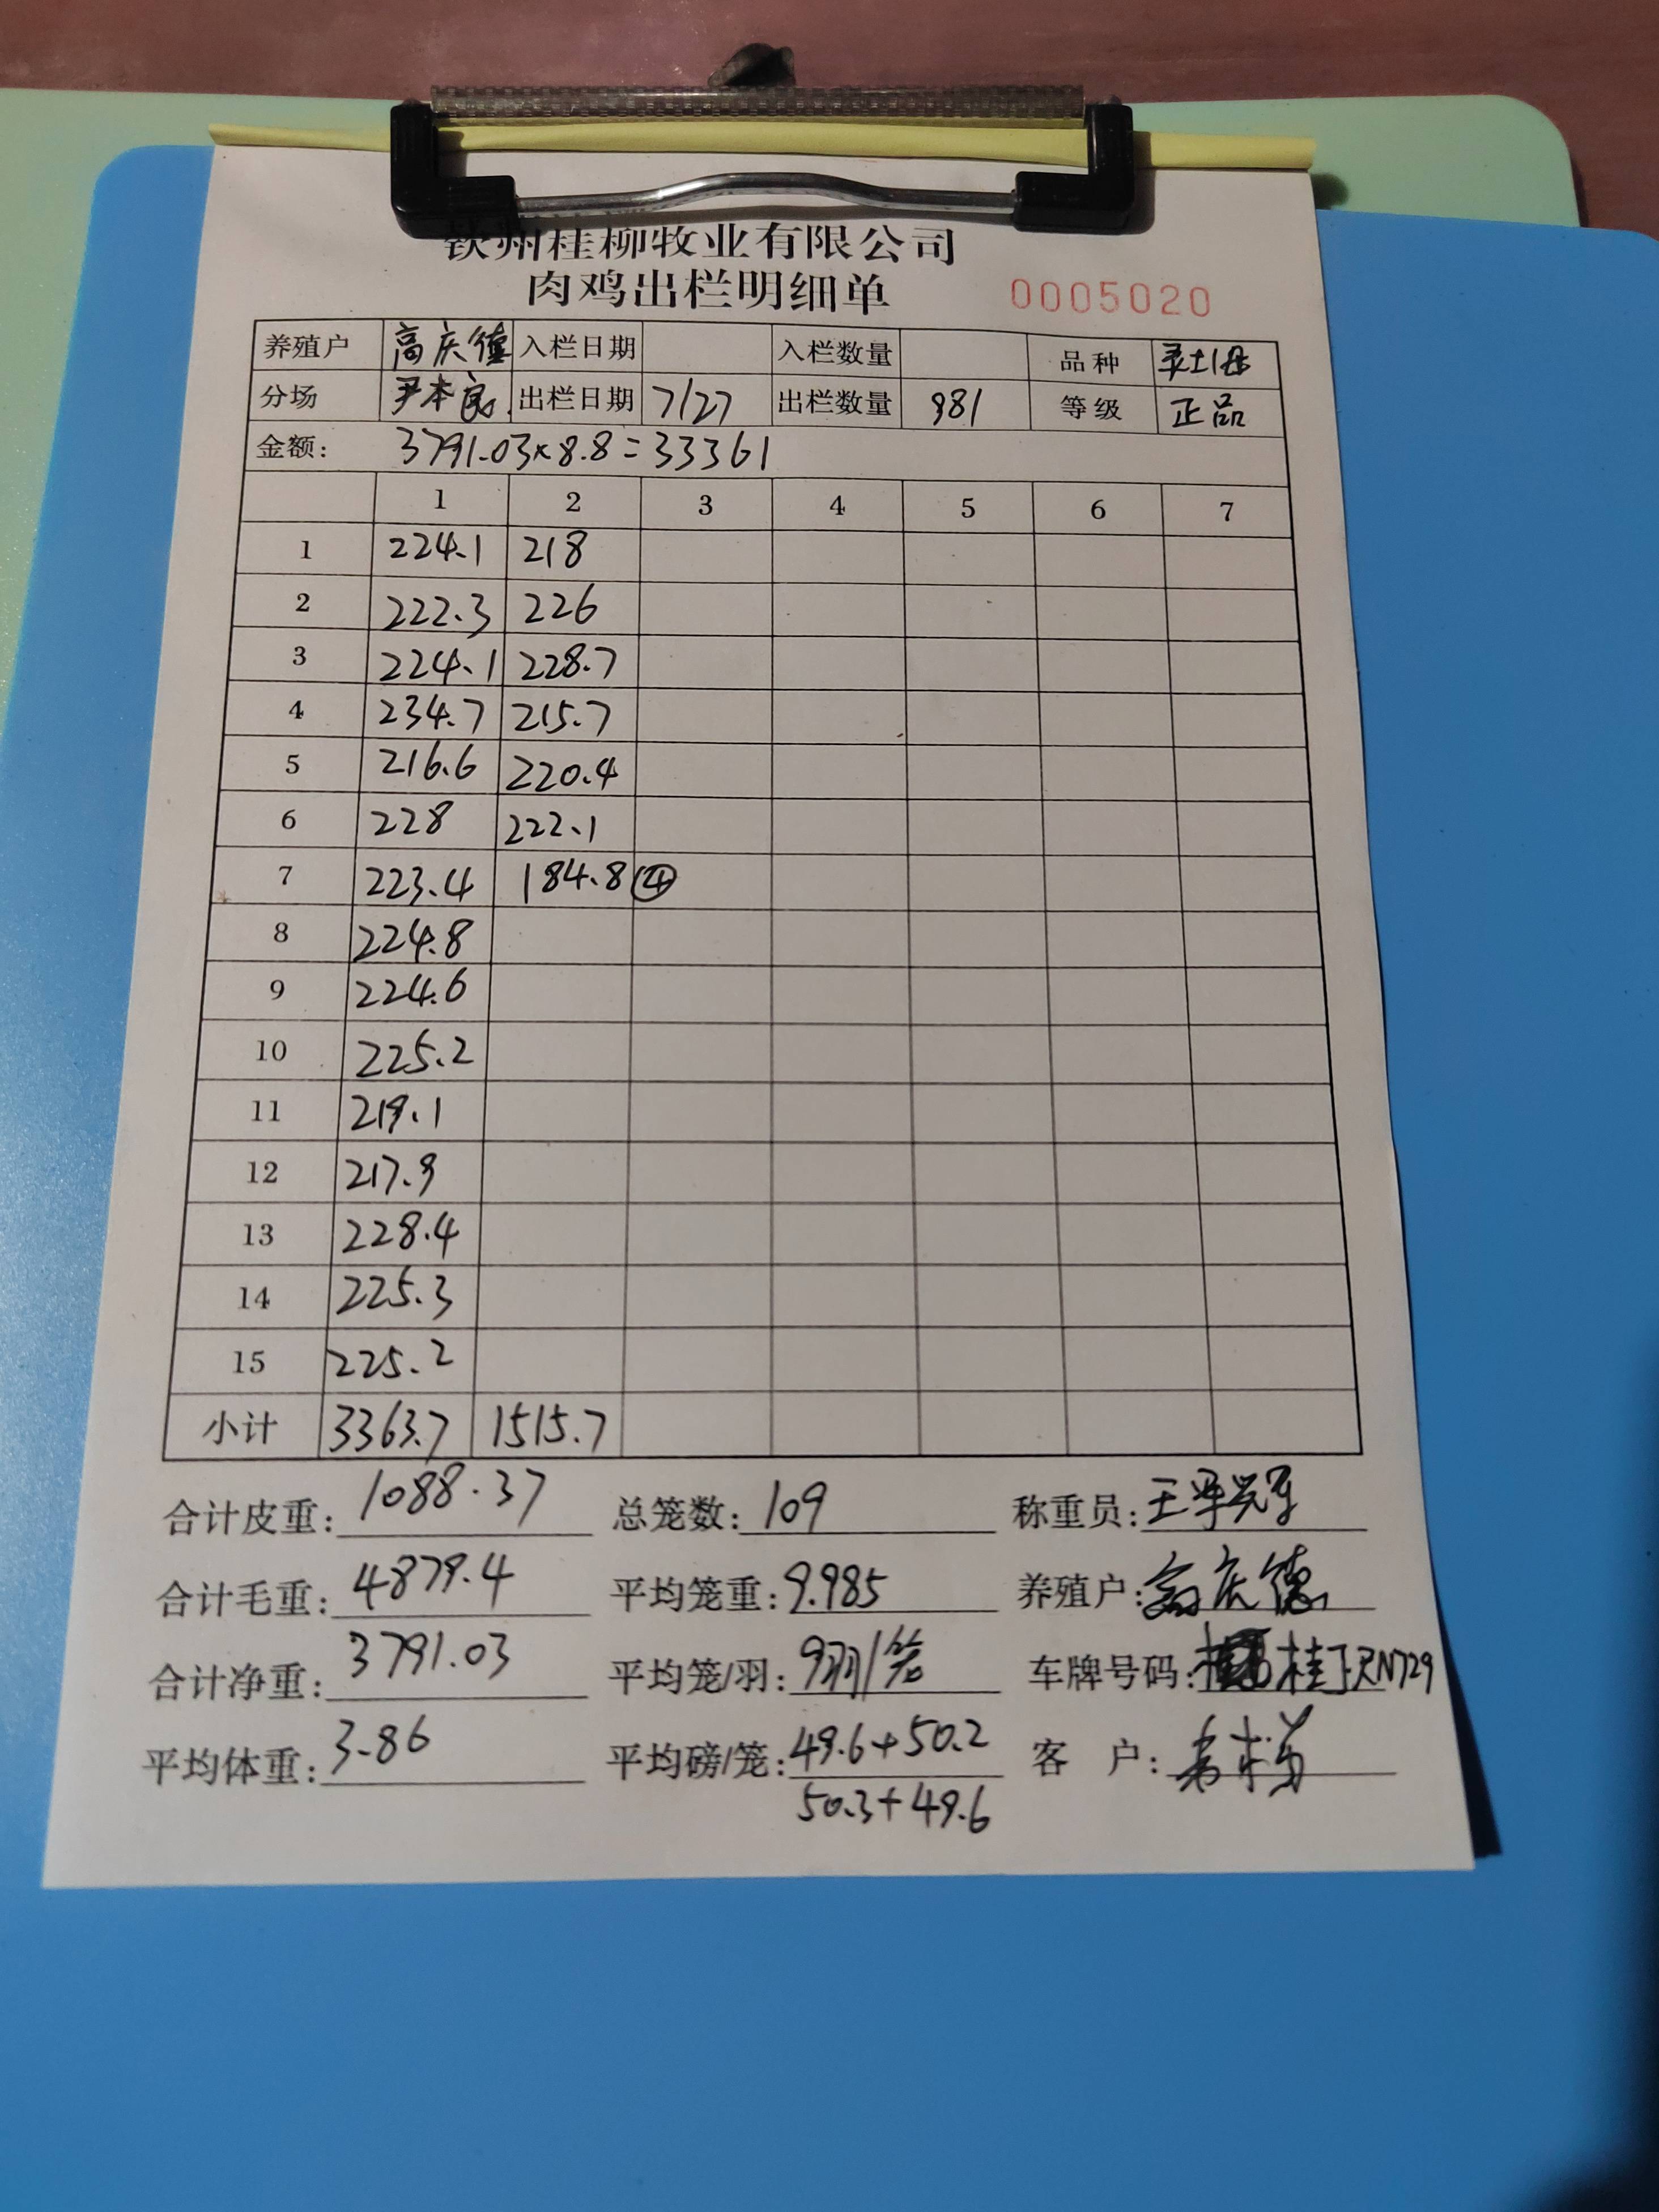 钦州桂柳牧业有限公司
肉鸡出栏明细单 0005020
养殖户 高庆德 入栏日期 入栏数量 品种
分场 尹本良 出栏日期 7/27 出栏数量 981 等级 正品
金额: 3791.03×8.8=33361
1 2 3 4 5 6 7
1 224.1 218
2 222.3 226
3 224.1 228.7
4 234.7 215.7
5 216.6 220.4
6 228 222.1
7 223.4 184.8 ④
8 224.8
9 224.6
10 225.2
11 219.1
12 217.9
13 228.4
14 225.3
15 225.2
小计 3363.7 1515.7
合计皮重: 1088.37 总笼数: 109 称重员:
合计毛重: 4879.4 平均笼重: 9.985 养殖户: 高庆德
合计净重: 3791.03 平均笼/羽: 9羽/笼 车牌号码:
平均体重: 3.86 平均磅/笼: 49.6+50.2 客户:
50.3+49.6